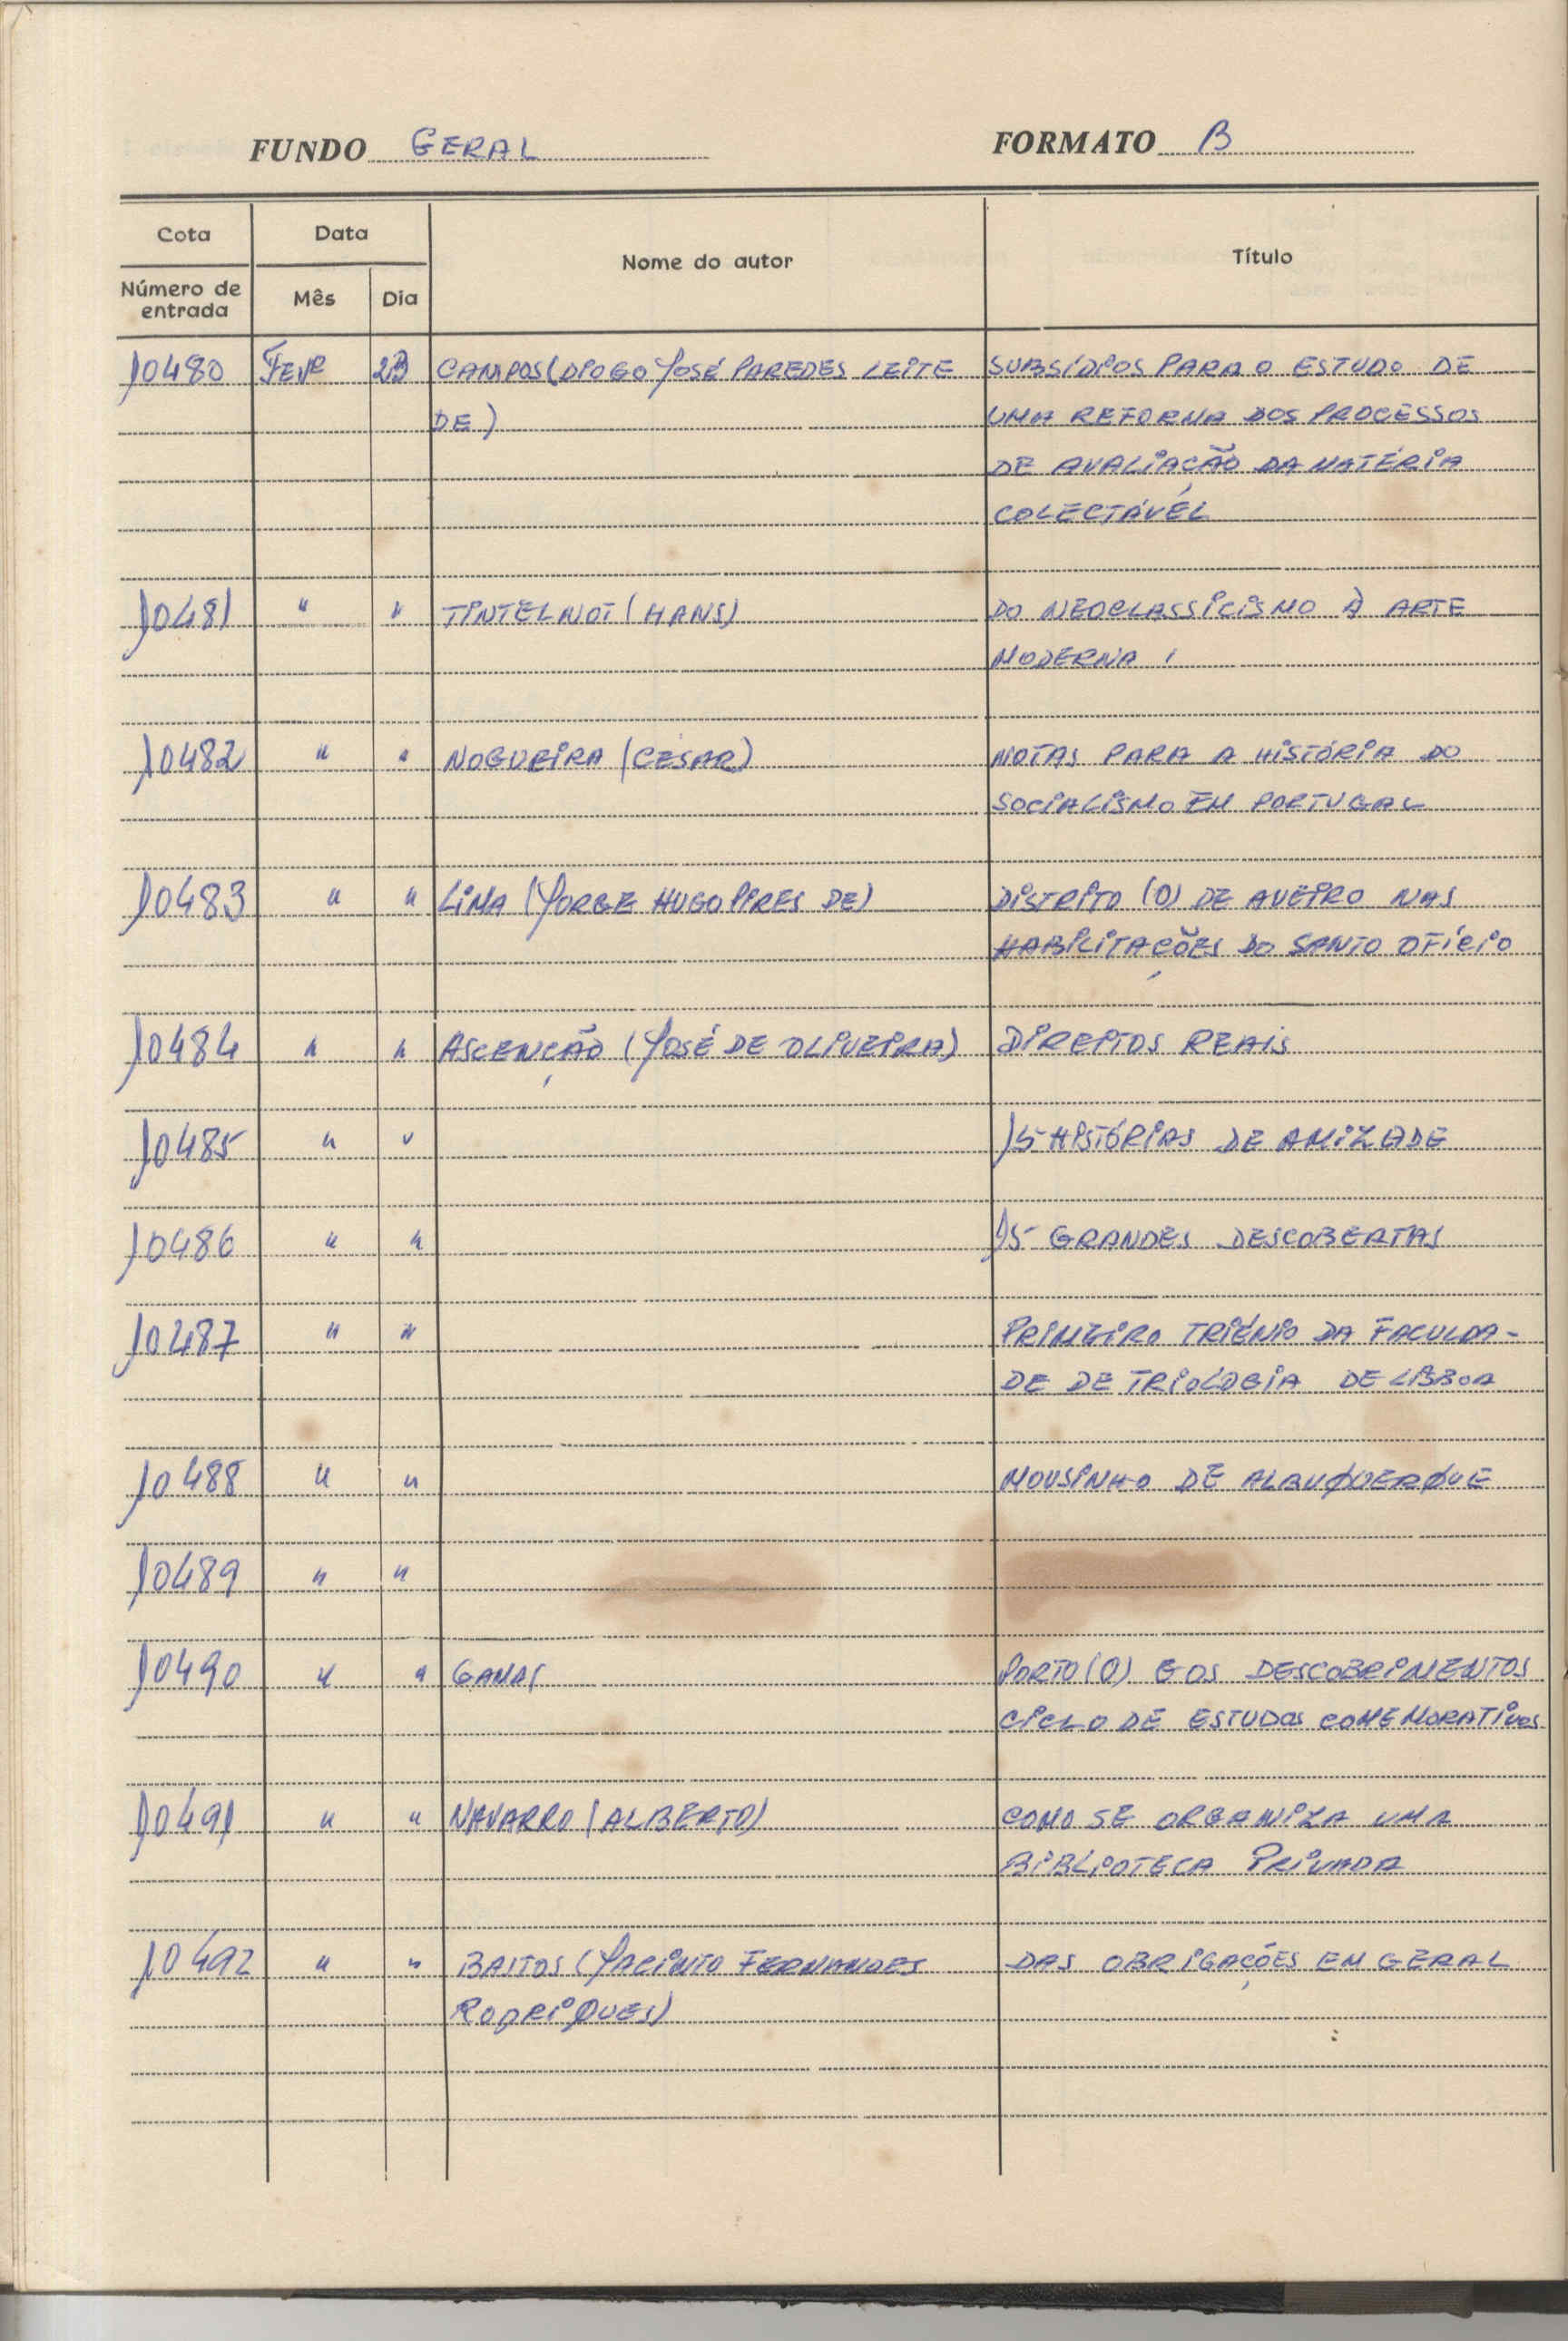 FUNDO GERAL FORMATO B
Cota Data Nome do autor Título
Número de entrada Mês Dia
10480 FEVº 23 CAMPOS (DIOGO JOSÉ PAREDES LEITE SUBSÍDIOS PARA O ESTUDO DE
DE) UMA REFORMA DOS PROCESSOS
DE AVALIAÇÃO DA MATÉRIA
COLECTÁVEL
10481 " " TINTELNOT (HANS) DO NEOCLASSICISMO À ARTE
MODERNA
10482 " " NOGUEIRA (CESAR) NOTAS PARA A HISTÓRIA DO
SOCIALISMO EM PORTUGAL
10483 " " LIMA (JORGE HUGO PIRES DE) DISTRITO (O) DE AVEIRO NAS
HABILITAÇÕES DO SANTO OFÍCIO
10484 " " ASCENÇÃO (JOSÉ DE OLIVEIRA) DIREITOS REAIS
10485 " " 15 HISTÓRIAS DE AMIZADE
10486 " " 15 GRANDES DESCOBERTAS
10487 " " PRIMEIRO TRIÉNIO DA FACULDA-
DE DE TRIOLOGIA DE LISBOA
10488 " " MOUSINHO DE ALBUQUERQUE
10489 " "
10490 " " PORTO (O) E OS DESCOBRIMENTOS
CICLO DE ESTUDOS COMEMORATIVOS
10491 " " NAVARRO (ALBERTO) COMO SE ORGANIZA UMA
BIBLIOTECA PRIVADA
10492 " " BASTOS (JACINTO FERNANDES DAS OBRIGAÇÕES EM GERAL
RODRIGUES)